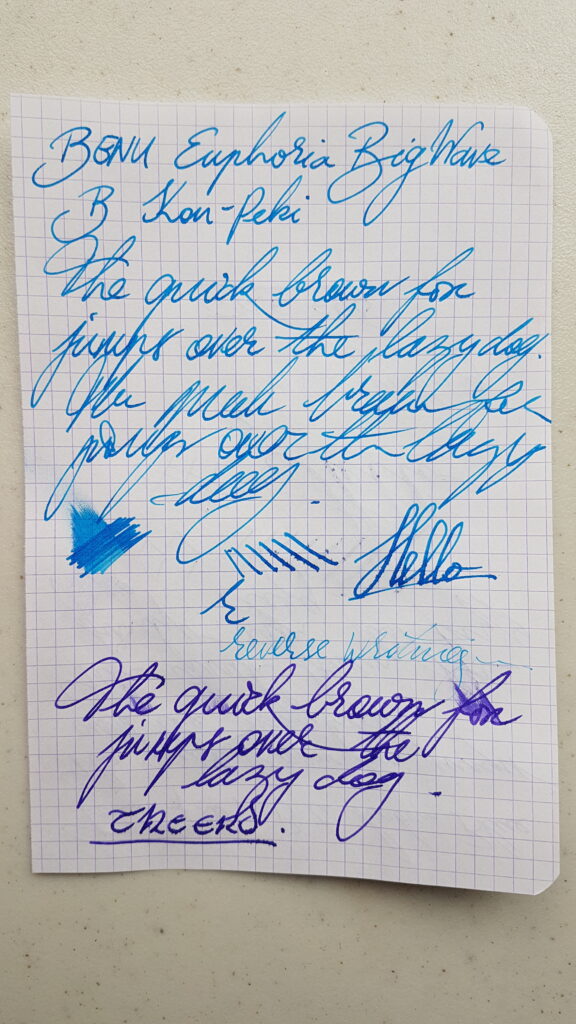 BENU Euphoria Big Wave
B Kon-Peki
The quick brown fox
jumps over the lazy dog.
The quick brown fox
jumps over the lazy
dog.
Hello
reverse writing
The quick brown fox
jumps over the
lazy dog.
CHEERS.